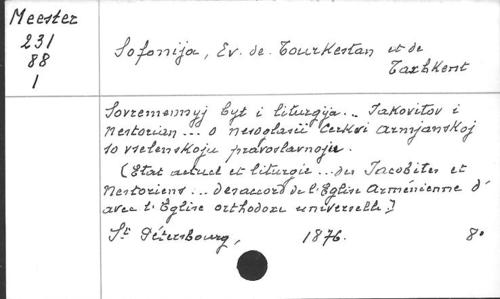 Meester
231
88
1
Sofonija, Ev. de Tourkestan et de
Tashkent
Sovremennyj byt i liturgija... Jakovitov i
Nestorian... o nesoglasii Cerkvi Armjanskoj
so vselenskoju pravoslavnoju.
(Etat actuel et liturgie... des Jacobites et
Nestoriens... Desaccord de l'Eglise Arménienne d'
avec l'Eglise orthodoxe universelle.)
St Pétersbourg, 1876. 8o